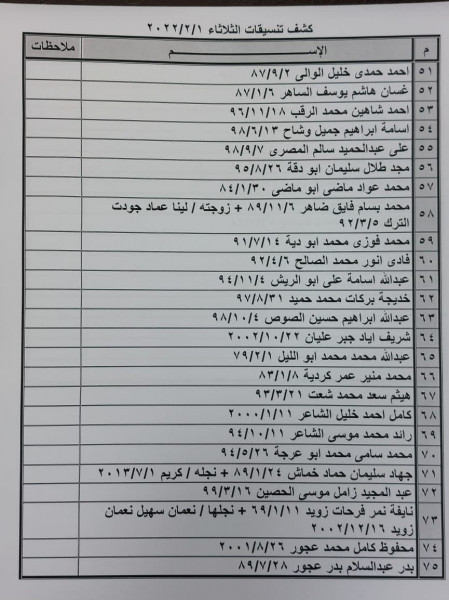 كشف تنسيقات الثلاثاء ٢٠٢٢/٢/١
م الإســـم ملاحظات
٥١ احمد حمدى خليل الوالى ٨٧/٩/٢
٥٢ غسان هاشم يوسف الساهر ٨٧/١/٦
٥٣ احمد شاهين محمد الرقب ٩٦/١١/١٨
٥٤ اسامة ابراهيم جميل وشاح ٩٨/٦/١٣
٥٥ على عبدالحميد سالم المصرى ٩٨/٩/٧
٥٦ مجد طلال سليمان ابو دقة ٩٥/٨/٢٦
٥٧ محمد عواد ماضى ابو ماضى ٨٤/١/٣٠
٥٨ محمد بسام فايق ضاهر ٨٩/١١/٦ + زوجته / لينا عماد جودت
الترك ٩٢/٣/٥
٥٩ محمد فوزى محمد ابو دية ٩١/٧/١٤
٦٠ فادى انور محمد الصالح ٩٢/٤/٦
٦١ عبدالله اسامة على ابو الريش ٩٤/١١/٤
٦٢ خديجة بركات محمد حميد ٩٧/٨/٣١
٦٣ عبدالله ابراهيم حسين الصوص ٩٨/١٠/٤
٦٤ شريف اياد جبر عليان ٢٠٠٢/١٠/٢٢
٦٥ عبدالله محمد محمد ابو الليل ٧٩/٢/١
٦٦ محمد منير عمر كردية ٨٣/١/٨
٦٧ هيثم سعد محمد شعت ٩٣/٣/٢١
٦٨ كامل احمد خليل الشاعر ٢٠٠٠/١/١١
٦٩ رائد محمد موسى الشاعر ٩٤/١٠/١١
٧٠ محمد سامى محمد ابو عرجة ٩٤/٥/٢٦
٧١ جهاد سليمان حماد خماش ٨٩/١/٢٤ + نجله / كريم ٢٠١٣/٧/١
٧٢ عبد المجيد زامل موسى الحصين ٩٩/٣/١٦
٧٣ نايفة نمر فرحات زويد ٦٩/١/١١ + نجلها / نعمان سهيل نعمان
زويد ٢٠٠٢/١٢/١٦
٧٤ محفوظ كامل محمد عجور ٢٠٠١/٨/٢٦
٧٥ بدر عبدالسلام بدر عجور ٨٩/٧/٢٨